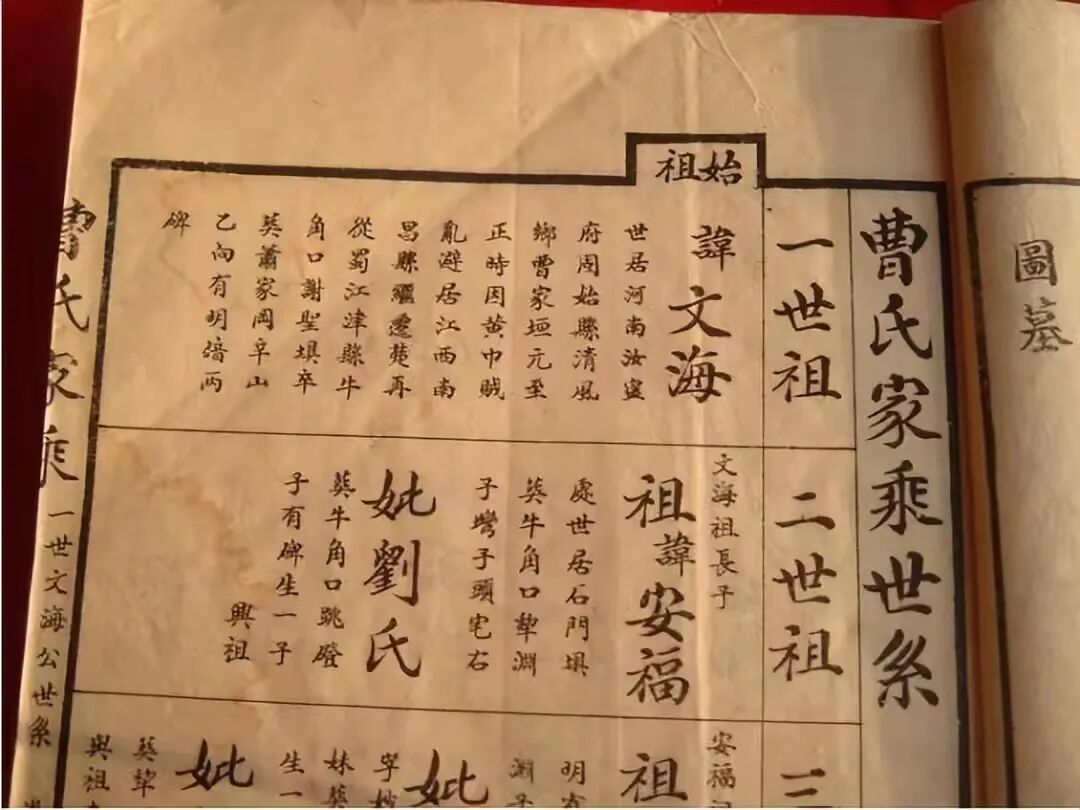 圖墓
曹氏家乘世系
始祖
一世祖
諱文海
世居河南汝寍
府固始縣清風
鄉曹家垣元至
正時因黄巾賊
亂避居江西南
昌縣繼遷楚再
從蜀江津縣牛
角口謝聖埧卒
葬蕭家岡辛山
乙向有明碏两
碑
二世祖
文海祖長子
祖諱安福
處世居石門埧
葬牛角口犂淵
子灣子頭宅右
妣劉氏
葬牛角口跳磴
子有碑生一子
興祖
三
安福
祖
明
淵子
妣
妹葬
生一
妣
葬犂
與祖
曹氏家乘
一世文海公世系